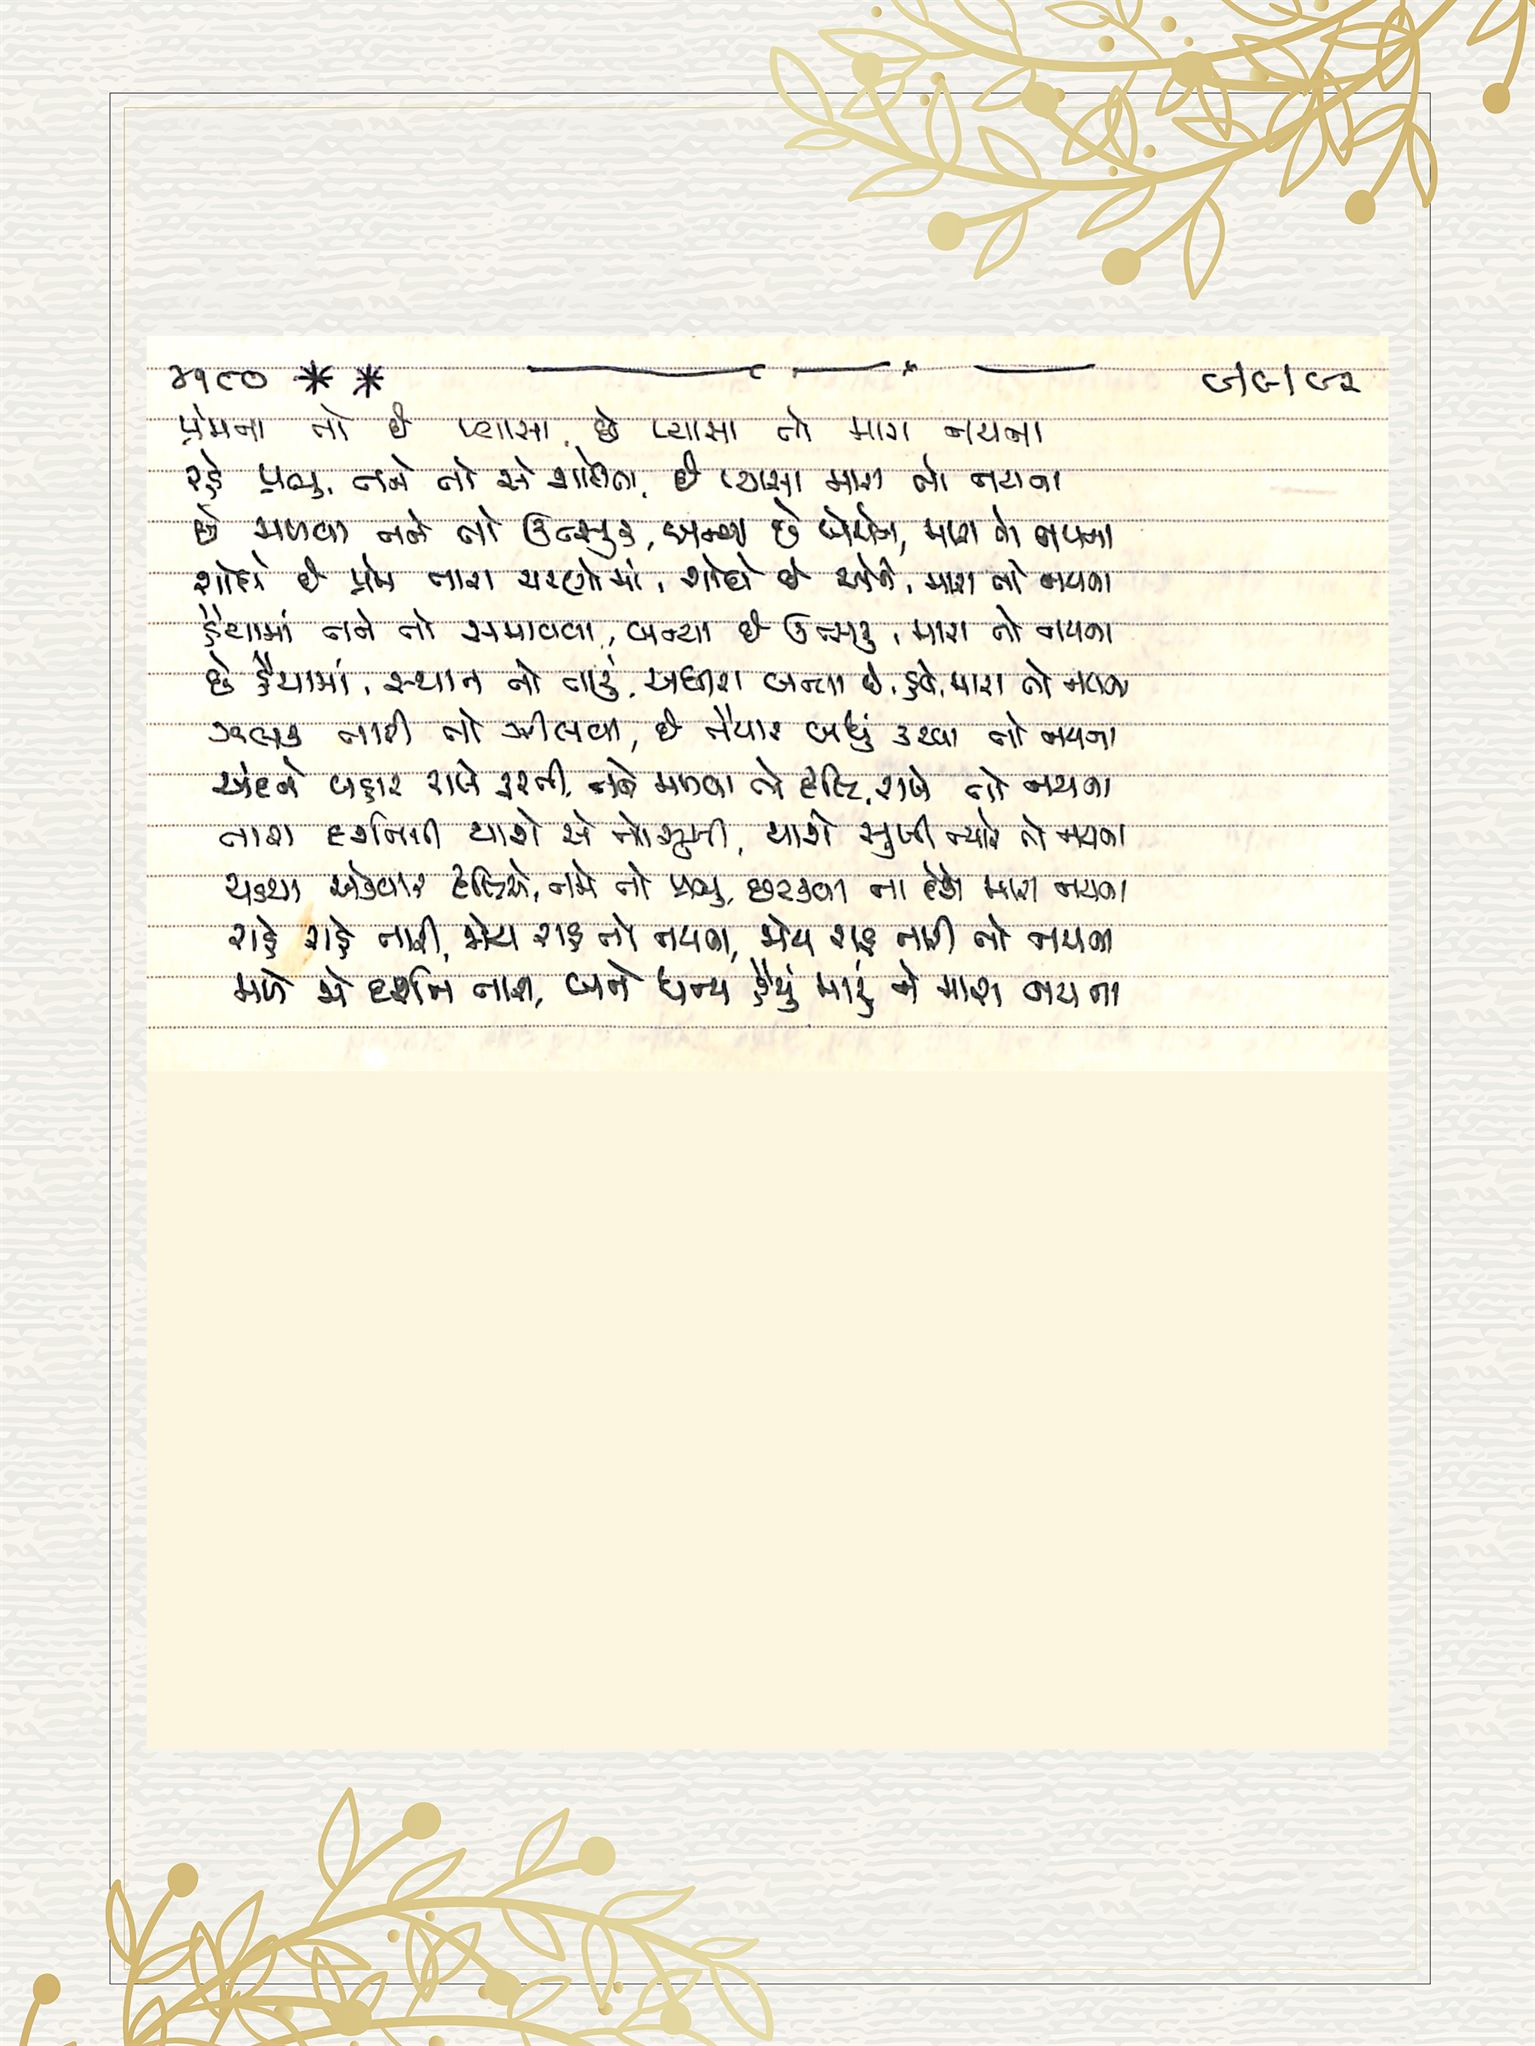 ૪૧૯૦ ** ૯/૯/૯૨
પ્રેમના તો છે પ્યાસા, છે પ્યાસા તો મારા નયના
રહે પ્રભુ, તને તો એ શોધતા, છે પ્યાસા મારા તો નયના
છે મળવા તને તો ઉત્સુક, બન્યા છે બેચેન, મારા તો નયના
શોધે છે પ્રેમ તારા ચરણોમાં, શોધે છે એને, મારા તો નયના
હૈયામાં તને તો સમાવવા, બન્યા છે ઉત્સુક, મારા તો નયના
છે હૈયામાં, સ્થાન તો તારું, અધીરા બન્યા છે, હવે, મારા તો નયના
ઝલક તારી તો ઝીલવા, છે તૈયાર બધું કરવા તો નયના
અંદર ને બહાર રાખે ફરતી, તને મળવા તો દૃષ્ટિ, રાખે તો નયના
તારા દર્શનથી થાશે એ તો સુખી, થાશે સુખી ત્યારે તો નયના
ચડયા એકવાર દૃષ્ટિએ, તમે તો પ્રભુ, છટકવા ના દેશે મારા નયના
રાહે રાહે તારી, જોય રાહ તો નયના, જોય રાહ તારી તો નયના
મળે જો દર્શન તારા, બને ધન્ય હૈયું મારું ને મારા નયના